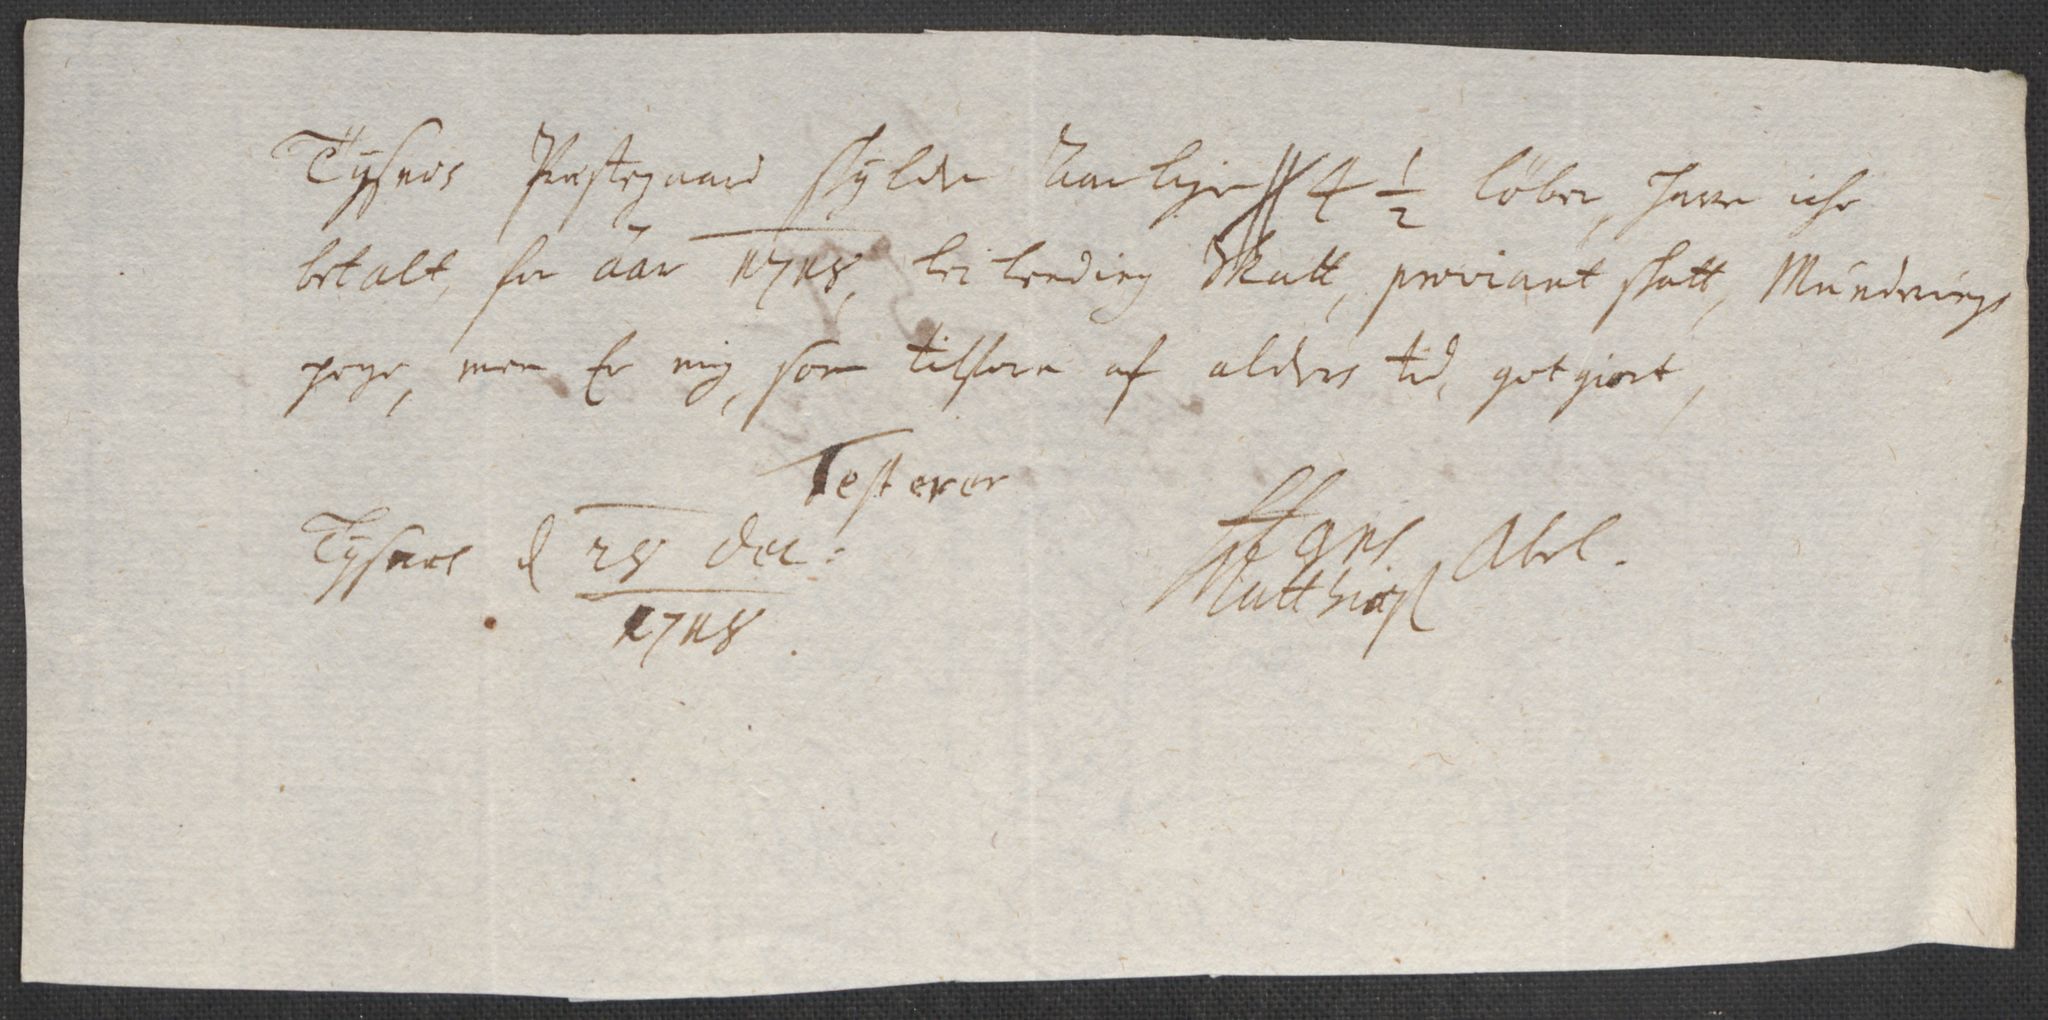 Tÿsnes Præstegaard skÿlder Aarligen 4 1/2 löber, haver iche
betalt, for äar 1718, leilending Skatt, proviant skatt, Munderings
penge, men Er mig, som tilforn af alders tid, gotgiort,
Testerer
Tÿsnes d 28 Dec: Hans Abel.
1718. Matthiass